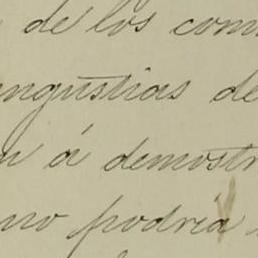 de los com
angustias de
á demostr
no podría